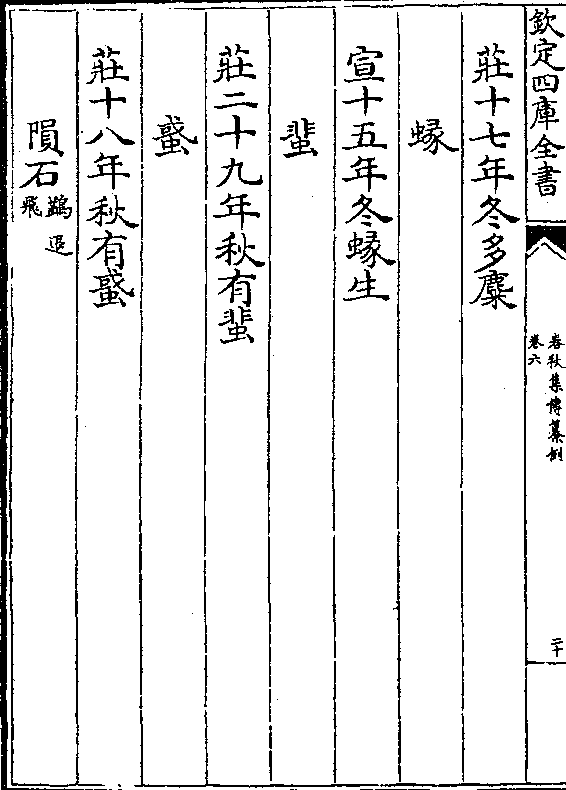 欽定四庫全書
春秋集傳纂例
卷六
二十
莊十七年冬多麋
蝝
宣十五年冬蝝生
蜚
莊二十九年秋有蜚
蜮
莊十八年秋有蜮
隕石鷁退飛